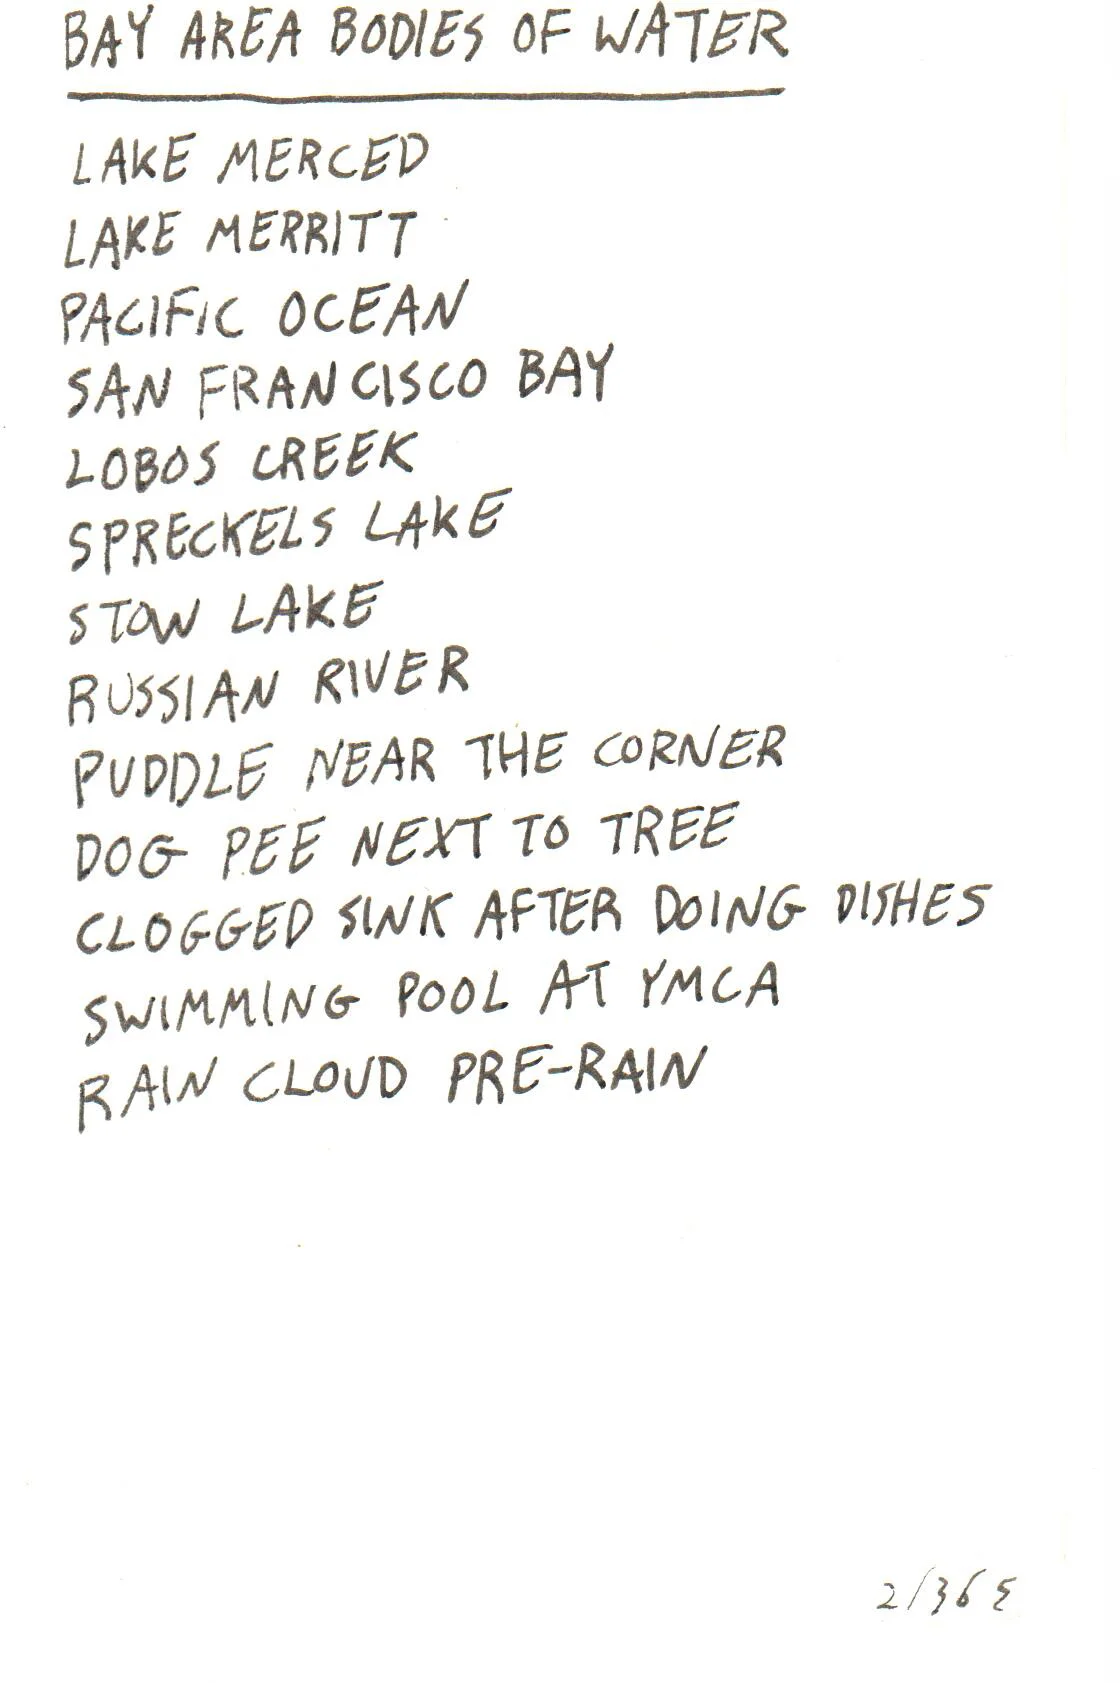 BAY AREA BODIES OF WATER
LAKE MERCED
LAKE MERRITT
PACIFIC OCEAN
SAN FRANCISCO BAY
LOBOS CREEK
SPRECKELS LAKE
STOW LAKE
RUSSIAN RIVER
PUDDLE NEAR THE CORNER
DOG PEE NEXT TO TREE
CLOGGED SINK AFTER DOING DISHES
SWIMMING POOL AT YMCA
RAIN CLOUD PRE-RAIN
2/365